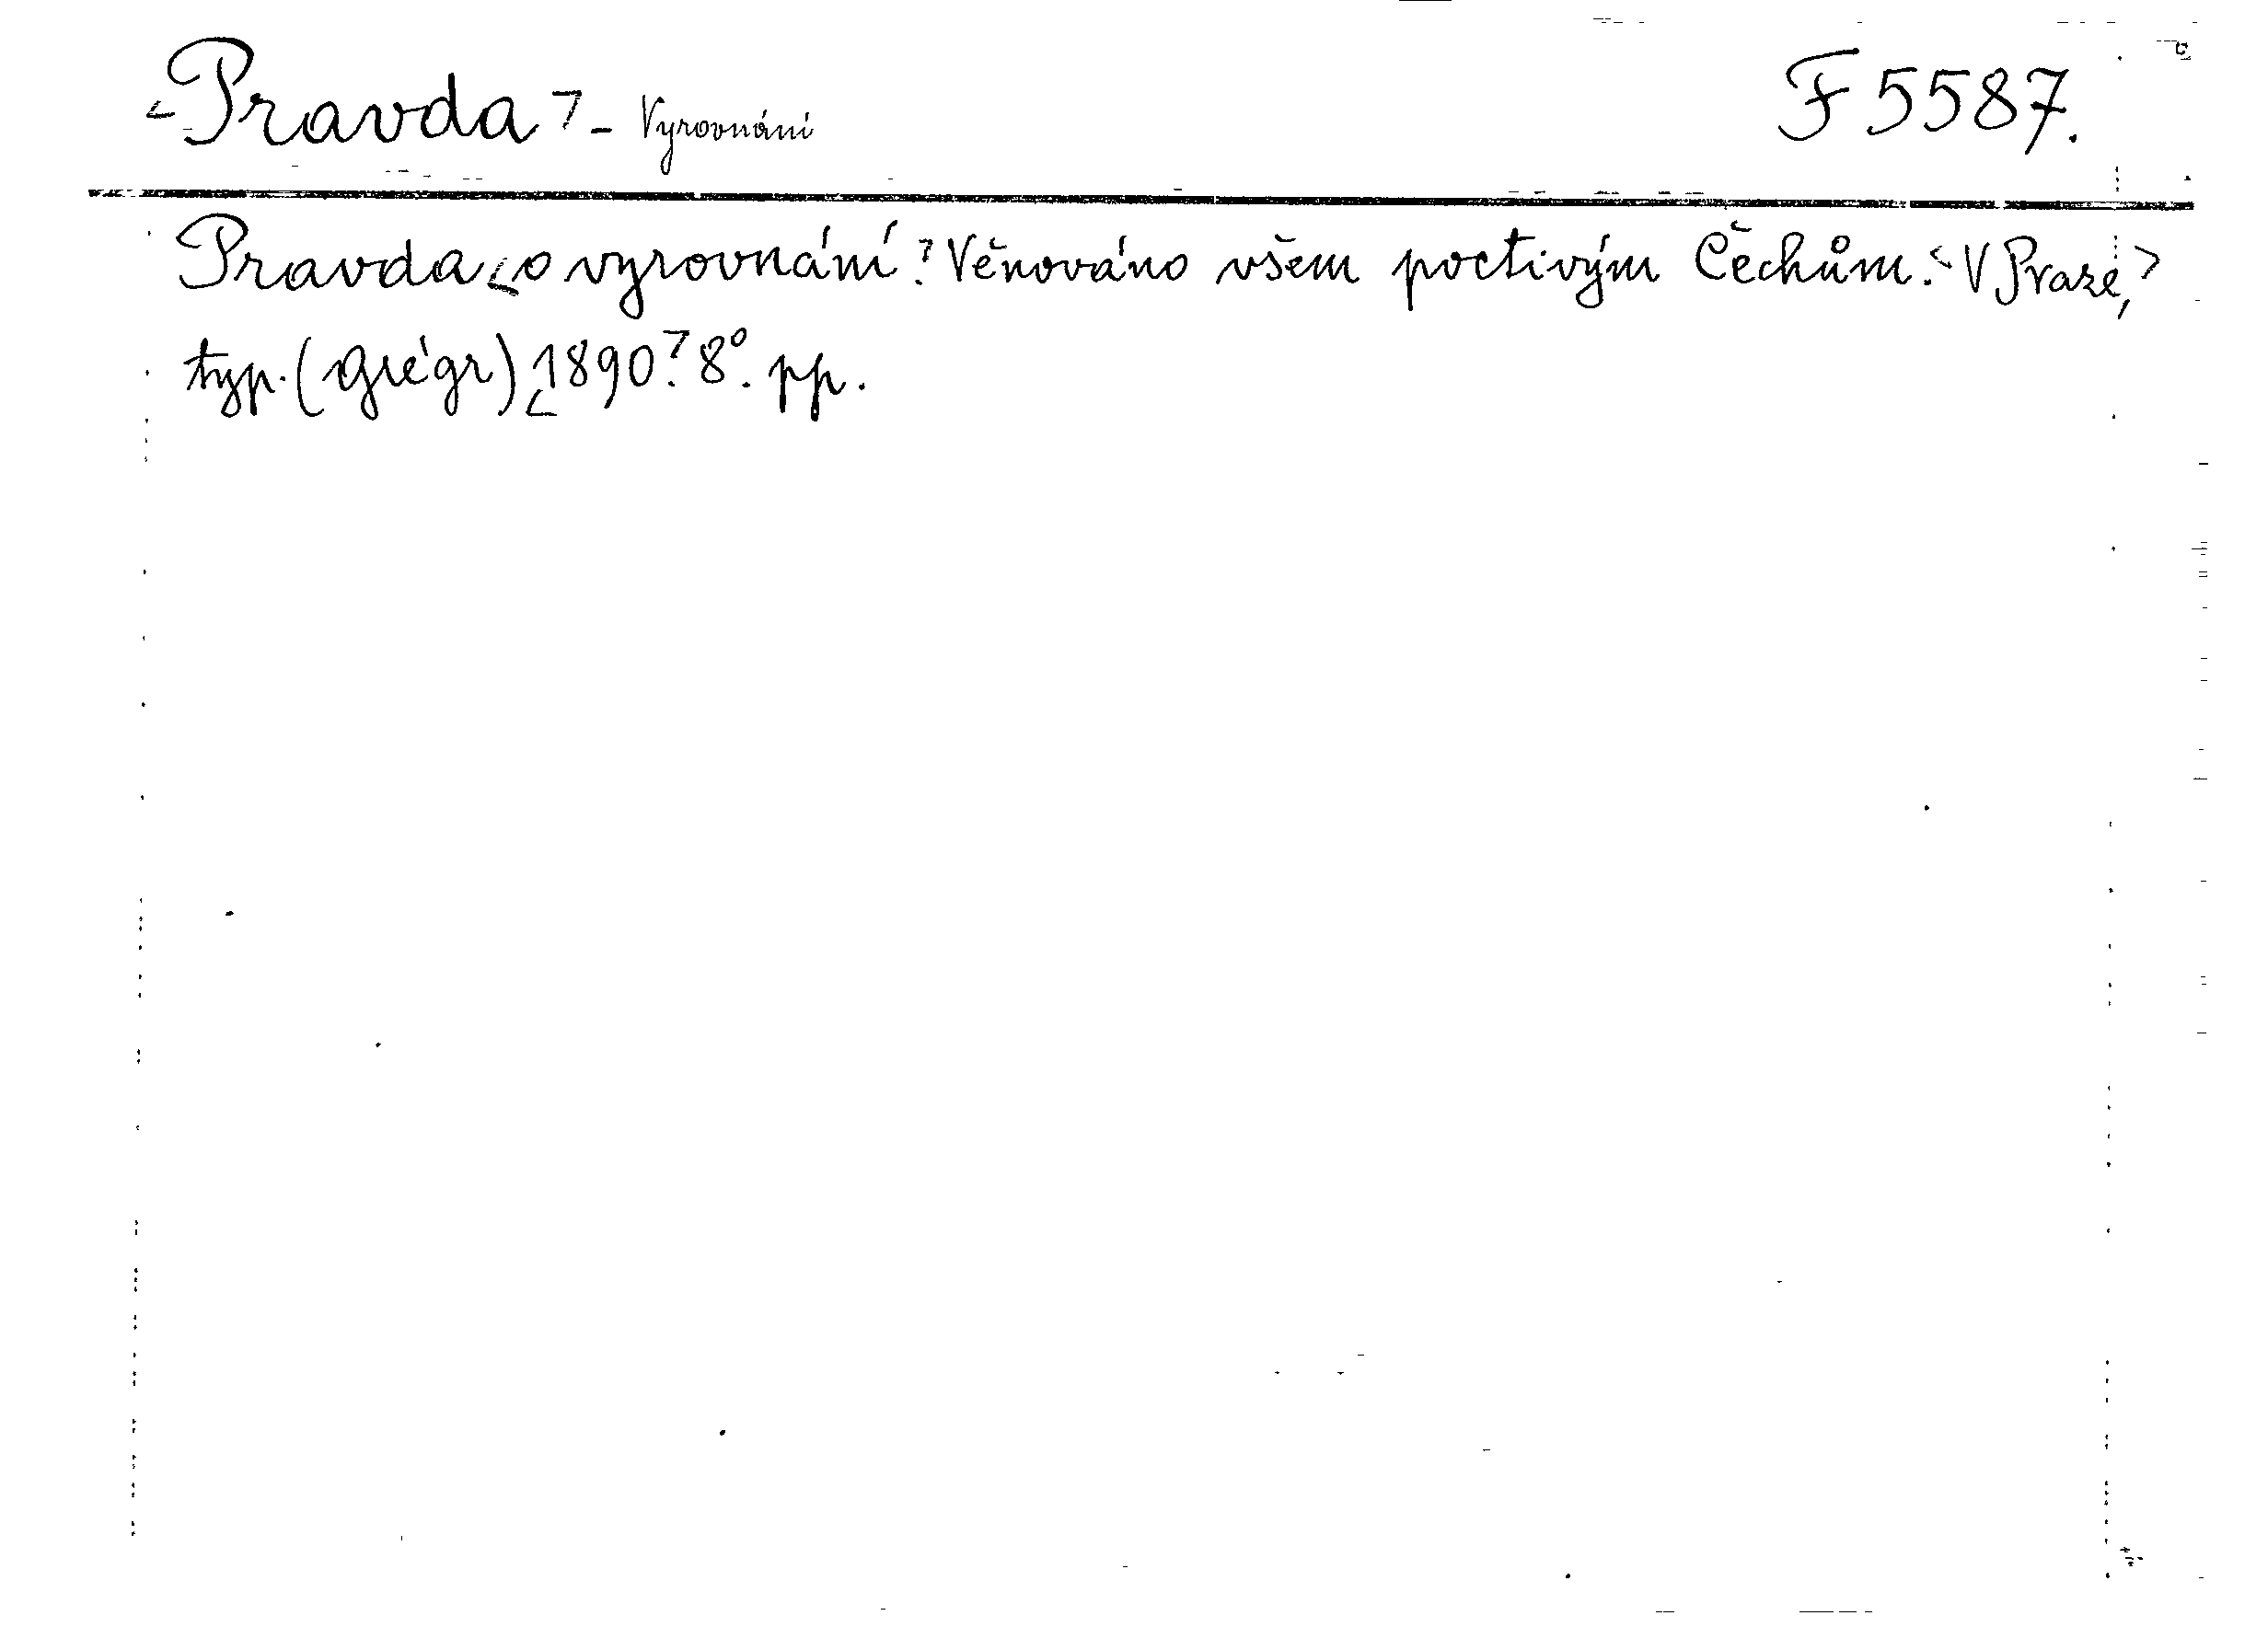 <Pravda> - Vyrovnání F 5587.
Pravda <o vyrovnání.> Věnováno všem poctivým Čechům. <V Praze,>
typ. (Grégr) <1890.> 8°. pp.